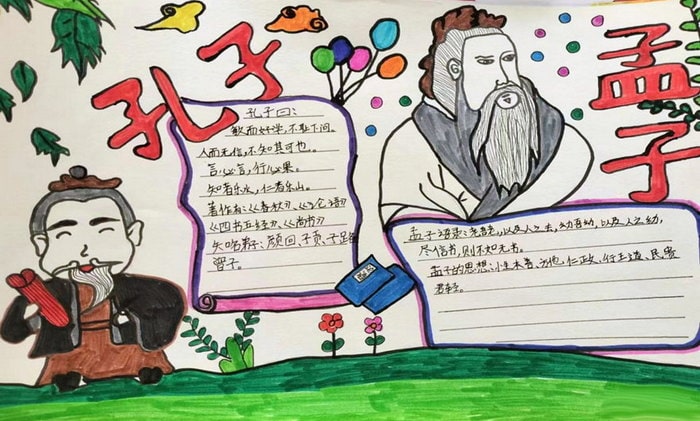 孔子
孔子曰:
敏而好学,不耻下问。
人而无信,不知其可也。
言必言,行必果。
知者乐水,仁者乐山。
著作有:《春秋》《论语》
《四书五经》《尚书》
弟子:颜回、子贡、子路
曾子。
孟子
孟子语录:老吾老,以及人之老,幼吾幼,以及人之幼,
尽信书,则不如无书。
孟子的思想:性本善、仁政、行王道、民贵
君轻。